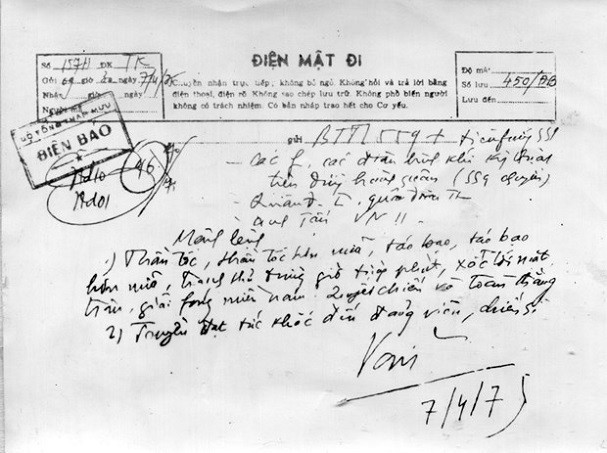 Số 157H ĐK TK
Gửi giờ ngày 7/4/75
Nhận giờ ngày
Người
ĐIỆN MẬT ĐI
Chuyển nhận trực tiếp; không bỏ ngỏ. Không hỏi và trả lời bằng
điện thoại, điện rõ. Không sao chép lưu trữ. Không phổ biến người
không có trách nhiệm. Có bản nhập trao hết cho Cơ yếu.
Độ mật
Số lưu 450/ĐB
Lưu đến
BỘ TỔNG THAM MƯU
ĐIỆN BÁO
46
gửi BTTM 559 +
- các các binh khí kỹ thuật
(559 chuyển)
- Quân
VN !!
Mệnh lệnh
1) Thần tốc, thần tốc hơn nữa, táo bạo, táo bạo
hơn nữa, tranh thủ từng giờ từng phút, xốc tới mặt
trận, giải fóng miền nam. Quyết chiến và toàn thắng
2) Truyền đạt tức khắc đến đảng viên, chiến sĩ
Văn
7/4/75